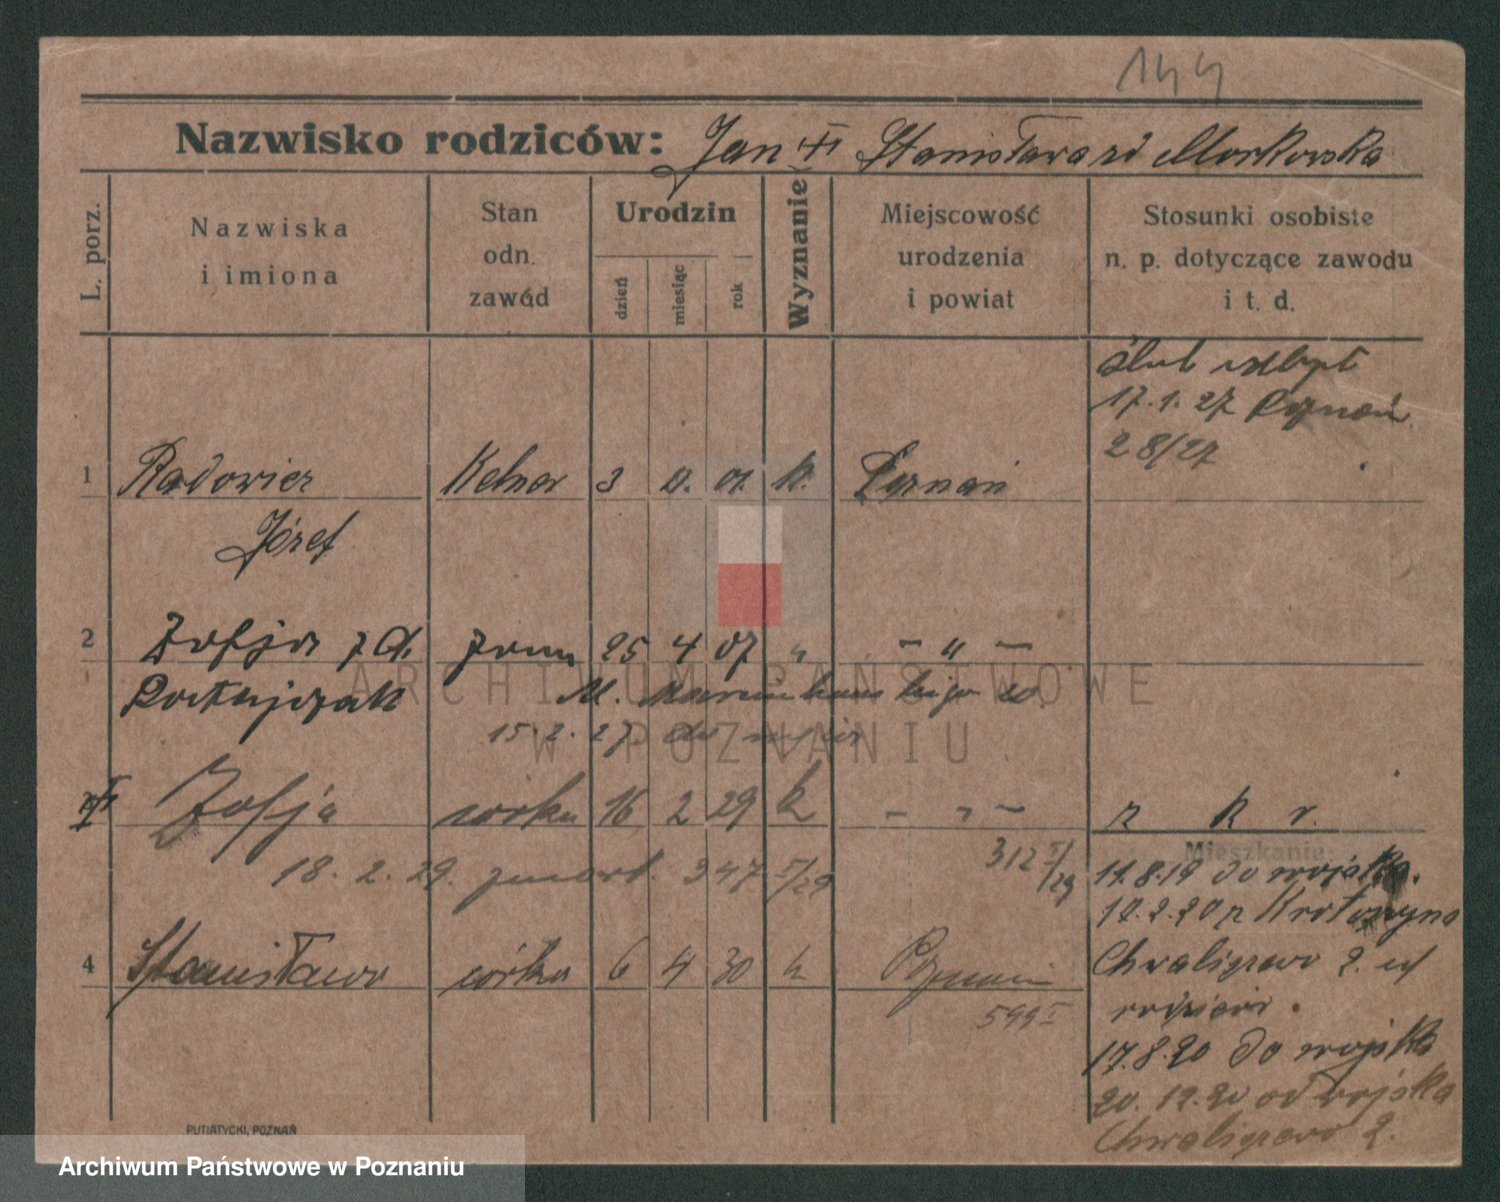 144
Nazwisko rodziców: Jan Stanisława zd Morkowska
L. porz.
Nazwiska i imiona
Stan odn. zawód
Urodzin
dzień
miesiąc
rok
Wyznanie
Miejscowość urodzenia i powiat
Stosunki osobiste n. p. dotyczące zawodu i t. d.
ślub odbył
17.1.27 Poznań
28/27
1 Radowicz Kelner 3 k. Poznań
Józef
2 Zofja z d. żona 25 4 07 " — " —
Ratajczak M.
15.2.27
Zofja córka 16 2 29 k — " — r k r.
312 I/29
Mieszkanie:
18.2.29. zmarł. 347 I/29
11.8.19 do wojska.
12.2.20 z Krotoszyna
4 Stanisława córka 6 4 30 k Poznań
599 I
Chwaliszewo 2. u
rodziców.
17.8.20 do wojska
20.12.20 od wojska
Chwaliszewo 2.
PUTIATYCKI, POZNAŃ
ARCHIWUM PAŃSTWOWE
W POZNANIU
Archiwum Państwowe w Poznaniu